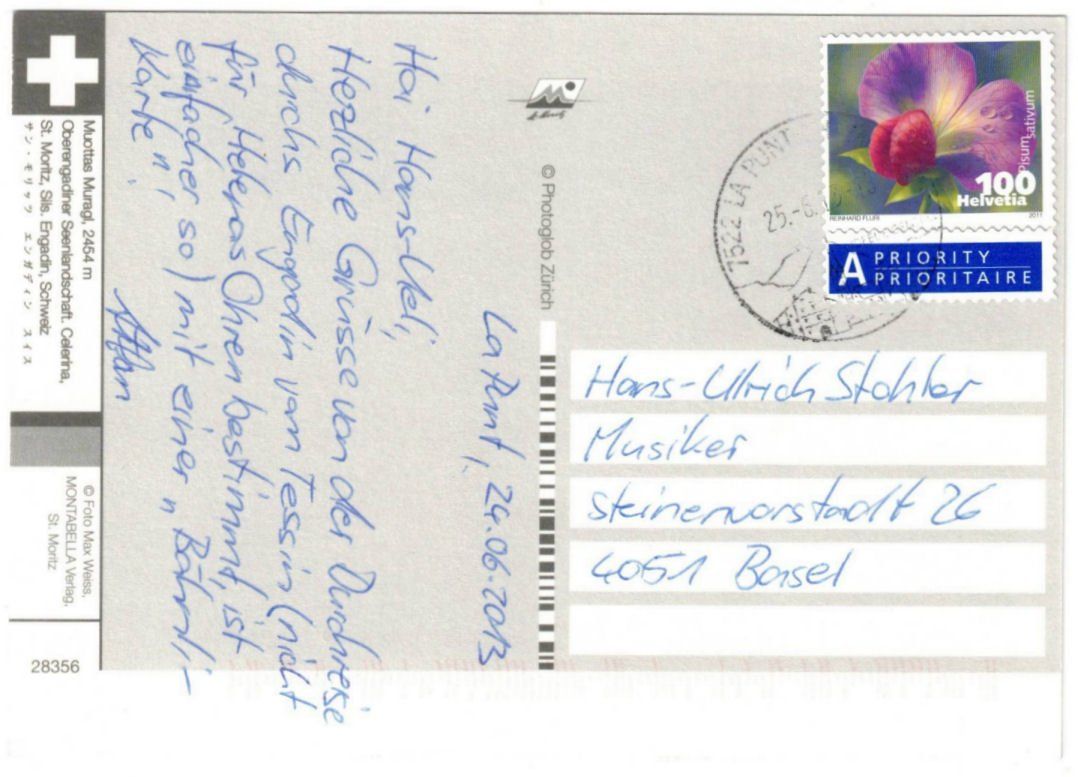 Muottas Muragl, 2454 m
Oberengadiner Seenlandschaft. Celerina,
St. Moritz, Sils. Engadin, Schweiz
サン・モリッツ エンガディン スイス
© Foto Max Weiss,
MONTABELLA Verlag,
St. Moritz
28356
La Punt, 24.06.2013
Hoi Hans-Ueli,
Herzliche Grüsse von der Durchreise
durchs Engadin vom Tessin (nicht
für Helenas Ohren bestimmt, ist
einfacher so) mit einer „Bähnli-
Karte"!
St. Moritz
© Photoglob Zürich
Pisum sativum
100
Helvetia
REINHARD FLURI
2011
A PRIORITY
PRIORITAIRE
7522 LA PUNT
25.-6.
Hans-Ulrich Stohler
Musiker
Steinenvorstadt 26
4051 Basel